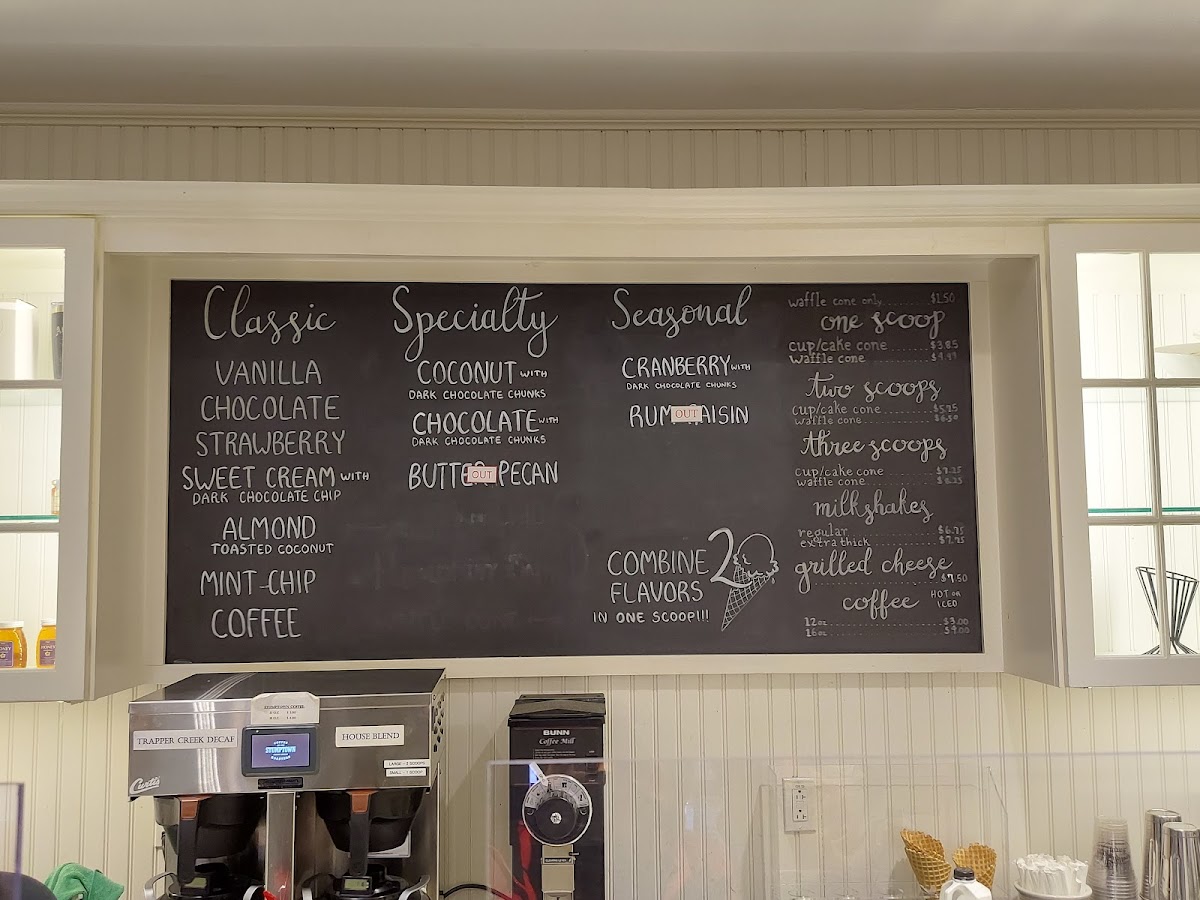 Classic
VANILLA
CHOCOLATE
STRAWBERRY
SWEET CREAM WITH
DARK CHOCOLATE CHIP
ALMOND
TOASTED COCONUT
MINT-CHIP
COFFEE
Specialty
COCONUT WITH
DARK CHOCOLATE CHUNKS
CHOCOLATE WITH
DARK CHOCOLATE CHUNKS
BUTTER PECAN
OUT
Seasonal
CRANBERRY WITH
DARK CHOCOLATE CHUNKS
RUM RAISIN
OUT
COMBINE 2
FLAVORS
IN ONE SCOOP!!!
waffle cone only $1.50
one scoop
cup/cake cone $3.85
waffle cone $4.99
two scoops
cup/cake cone $5.75
waffle cone $6.50
three scoops
cup/cake cone $7.25
waffle cone $8.25
milkshakes
regular $6.75
extra thick $7.75
grilled cheese
$7.50
coffee HOT OR
ICED
12oz $3.00
16oz $4.00
TRAPPER CREEK DECAF
STUMPTOWN
HOUSE BLEND
LARGE - 2 SCOOPS
SMALL - 1 SCOOP
Curtis
BUNN
Coffee Mill
HONEY